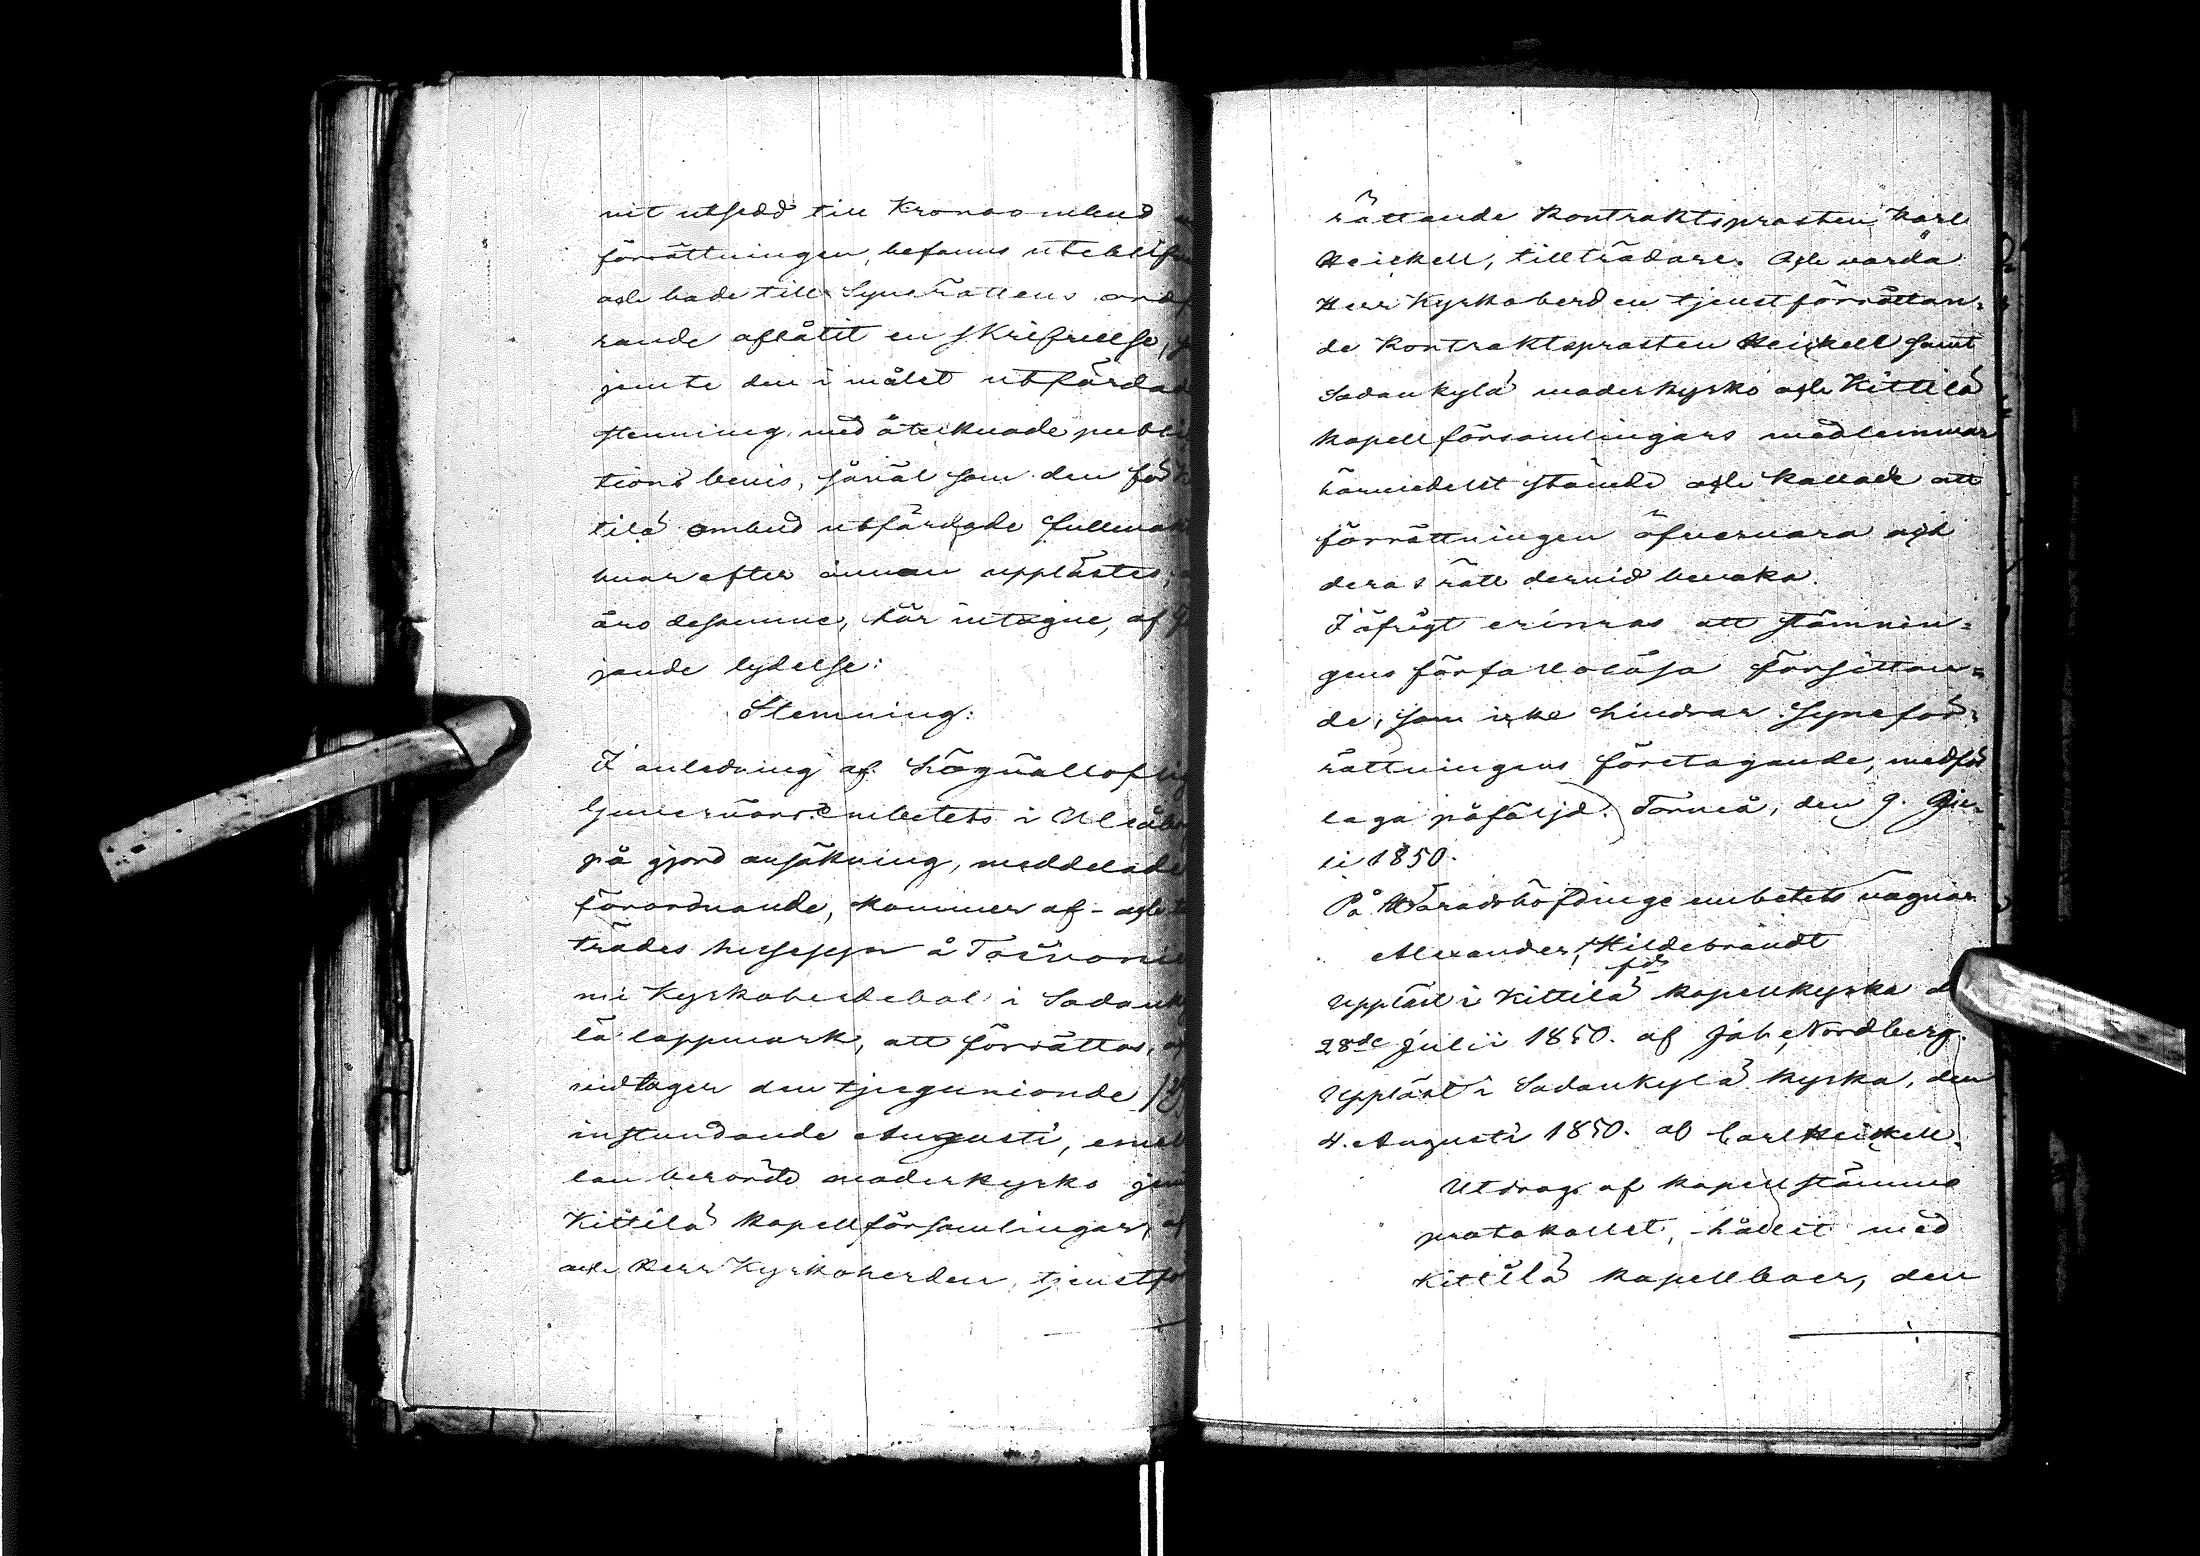 vit utsedd till Kronoombud
förrättningen, befanns uteblif
och hade till Synerättens ordf
rande aflåtit en skrifvelse,
jemte den i målet utfärdad
stemning med åtecknade publi
tions bevis, såväl som den för
tilä ombud utfärdade fullmak
hvar efter annan upplästes,
äro desamme, här intagne, af
jande lydelse:
Stemning:
I anledning af Högvällofli
Guvernörs Embetets i Uleåb
på gjord ansökning, meddelade
förordnande, kommer af- och
trädes husesyn å Toivonie
mi Kyrkoherdebol i Sodank
lä lappmark, att förrättas,
vidtager den tjugunionde /29
instundande Augusti, emel
lan berörde moderkyrko
Kittilä kapellförsamlingar,
och Herr Kyrkoherden, tjenstfö
rättande Kontraktsprosten Karl
Heickell, tillträdare. Och varda
Herr Kyrkoherden tjenstförrättan-
de Kontraktsprosten Heickell samt
Sodankylä moderkyrko och Kittilä
kapellförsamlingars medlemmar
härmedelst stämde och kallade att
förrättningen öfvervara och
deras rätt dervid bevaka.
I öfrigt erinras att stämnin-
gens förfallolösa försittan-
de, som icke hindrar Syneför-
rättningens företagande, medför
laga påföljd. Torneå, den 9. Ju-
li 1850.
På Häradshöfdinge embetets vägnar
Alexander Hildebrandt
Uppläst i Kittilä kapellkyrka d
28de Julii 1850. af Joh. Nordberg.
pds
Uppläst i Sodankylä kyrka, den
4. Augusti 1850. af Carl Heickell.
Utdrag af kapellstämmo
protokollet, hållit med
Kittilä kapellboer, den